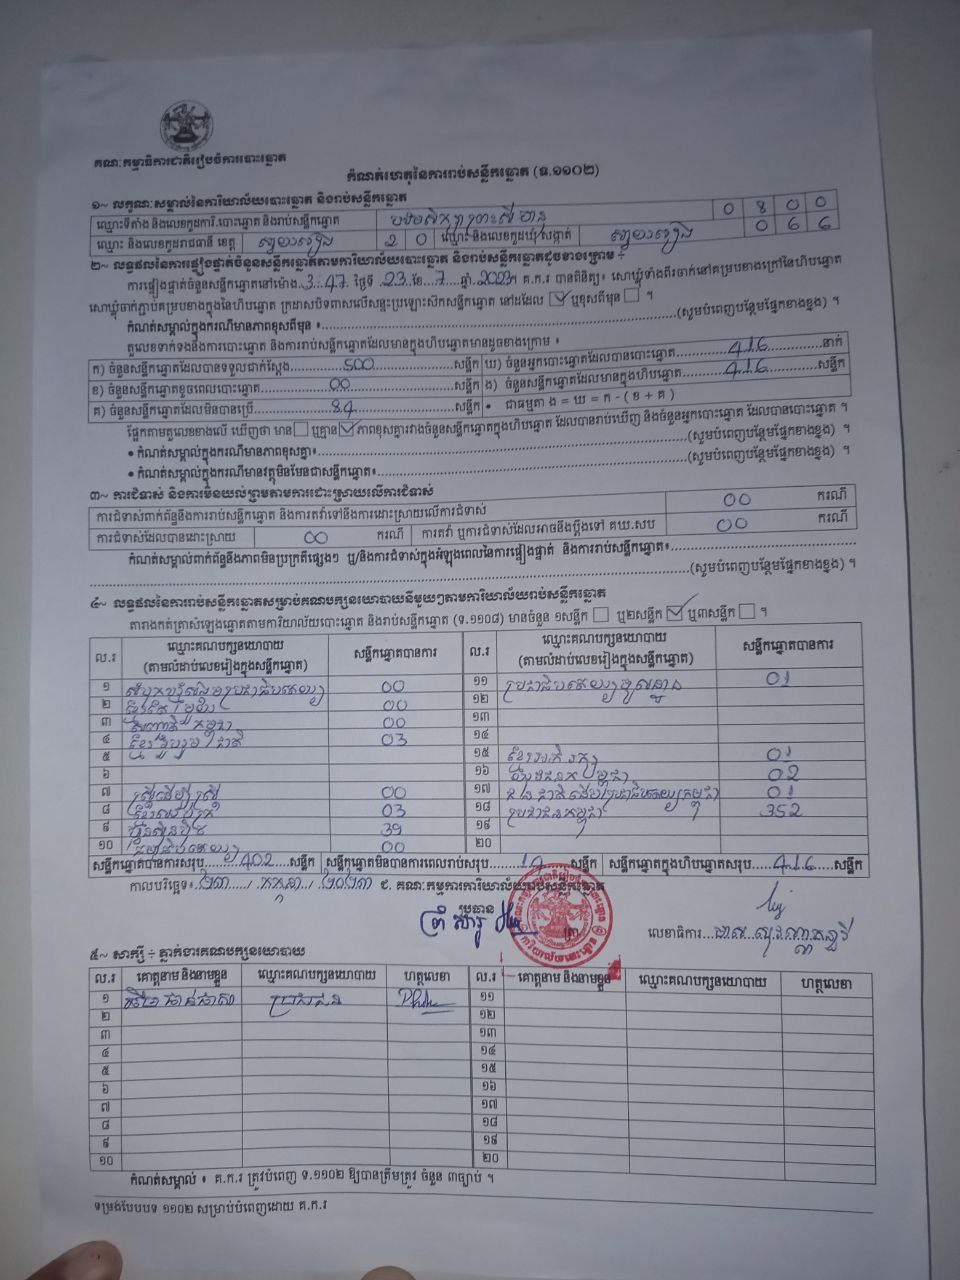 គណៈកម្មាធិការជាតិរៀបចំការបោះឆ្នោត
កំណត់ហេតុនៃការរាប់សន្លឹកឆ្នោត (ទ.១១០២)
១~ លក្ខណៈសម្គាល់នៃការិយាល័យបោះឆ្នោត និងរាប់សន្លឹកឆ្នោត
ឈ្មោះទីតាំង និងលេខកូដការិ.បោះឆ្នោត និងរាប់សន្លឹកឆ្នោត 0 8 0 0
ឈ្មោះ និងលេខកូដរាជធានី ខេត្ត ស្វាយរៀង 2 0 ឈ្មោះ និងលេខកូដឃុំ/សង្កាត់ ស្វាយរៀង 0 6 6
២~ លទ្ធផលនៃការផ្ទៀងផ្ទាត់ចំនួនសន្លឹកឆ្នោតតាមការិយាល័យបោះឆ្នោត និងរាប់សន្លឹកឆ្នោតដូចខាងក្រោម ÷
ការផ្ទៀងផ្ទាត់ចំនួនសន្លឹកឆ្នោតនៅម៉ោង 3:47 ថ្ងៃទី 23 ខែ 7 ឆ្នាំ 2023 គ.ក.រ បានពិនិត្យ៖ សោឃ្លុំទាំងពីរចាក់នៅគម្របខាងក្រៅនៃហិបឆ្នោត
សោឃ្លុំចាក់ភ្ជាប់គម្របខាងក្នុងនៃហិបឆ្នោត ក្រដាសបិទពាសលើសន្ទះប្រឡោះស៊កសន្លឹកឆ្នោត នៅដដែល ☑ ឬខុសពីមុន ☐ ។
កំណត់សម្គាល់ក្នុងករណីមានភាពខុសពីមុន ៖ (សូមបំពេញបន្ថែមផ្នែកខាងខ្នង) ។
តួលេខទាក់ទងនឹងការបោះឆ្នោត និងការរាប់សន្លឹកឆ្នោតដែលមានក្នុងហិបឆ្នោតមានដូចខាងក្រោម ៖
ក) ចំនួនសន្លឹកឆ្នោតដែលបានទទួលជាក់ស្តែង 500 សន្លឹក ឃ) ចំនួនអ្នកបោះឆ្នោតដែលបានបោះឆ្នោត 416 នាក់
ខ) ចំនួនសន្លឹកឆ្នោតខូចពេលបោះឆ្នោត 00 សន្លឹក ង) ចំនួនសន្លឹកឆ្នោតដែលមានក្នុងហិបឆ្នោត 416 សន្លឹក
គ) ចំនួនសន្លឹកឆ្នោតដែលមិនបានប្រើ 84 សន្លឹក • ជាធម្មតា ង = ឃ = ក - ( ខ + គ )
ផ្អែកតាមតួលេខខាងលើ ឃើញថា មាន ☐ ឬគ្មាន ☑ ភាពខុសគ្នារវាងចំនួនសន្លឹកឆ្នោតក្នុងហិបឆ្នោត ដែលបានរាប់ឃើញ និងចំនួនអ្នកបោះឆ្នោត ដែលបានបោះឆ្នោត ។
• កំណត់សម្គាល់ក្នុងករណីមានភាពខុសគ្នា៖ (សូមបំពេញបន្ថែមផ្នែកខាងខ្នង) ។
• កំណត់សម្គាល់ក្នុងករណីមានវត្ថុមិនមែនជាសន្លឹកឆ្នោត៖ (សូមបំពេញបន្ថែមផ្នែកខាងខ្នង) ។
៣~ ការជំទាស់ និងការមិនយល់ព្រមតាមការដោះស្រាយលើការជំទាស់
ការជំទាស់ពាក់ព័ន្ធនឹងការរាប់សន្លឹកឆ្នោត និងការតវ៉ាទៅនឹងការដោះស្រាយលើការជំទាស់ 00 ករណី
ការជំទាស់ដែលបានដោះស្រាយ 00 ករណី ការតវ៉ា ឬការជំទាស់ដែលអាចនឹងប្តឹងទៅ គឃ.សប 00 ករណី
កំណត់សម្គាល់ពាក់ព័ន្ធនឹងភាពមិនប្រក្រតីផ្សេងៗ ឬ/និងការជំទាស់ក្នុងអំឡុងពេលនៃការផ្ទៀងផ្ទាត់ និងការរាប់សន្លឹកឆ្នោត៖
(សូមបំពេញបន្ថែមផ្នែកខាងខ្នង) ។
៤~ លទ្ធផលនៃការរាប់សន្លឹកឆ្នោតសម្រាប់គណបក្សនយោបាយនីមួយៗតាមការិយាល័យរាប់សន្លឹកឆ្នោត
តារាងកត់ត្រាសំឡេងឆ្នោតតាមការិយាល័យបោះឆ្នោត និងរាប់សន្លឹកឆ្នោត (ទ.១១០៨) មានចំនួន ១សន្លឹក ☐ ឬ២សន្លឹក ☑ ឬ៣សន្លឹក ☐ ។
ល.រ ឈ្មោះគណបក្សនយោបាយ (តាមលំដាប់លេខរៀងក្នុងសន្លឹកឆ្នោត) សន្លឹកឆ្នោតបានការ ល.រ ឈ្មោះគណបក្សនយោបាយ (តាមលំដាប់លេខរៀងក្នុងសន្លឹកឆ្នោត) សន្លឹកឆ្នោតបានការ
១ សំបុកឃ្មុំសង្គមប្រជាធិបតេយ្យ 00 ១១ 01
២ ខ្មែរតែមួយ 00 ១២
៣ សញ្ជាតិកម្ពុជា 00 ១៣
៤ ខ្មែររួបរួមជាតិ 03 ១៤
៥ ១៥ ខ្មែរអភិរក្ស 01
៦ ១៦ 02
៧ ស្ត្រីដើម្បីស្ត្រី 00 ១៧ 01
៨ 03 ១៨ ប្រជាជនកម្ពុជា 352
៩ ហ៊្វុនស៊ិនប៉ិច 39 ១៩
១០ 00 ២០
សន្លឹកឆ្នោតបានការសរុប 402 សន្លឹក សន្លឹកឆ្នោតមិនបានការពេលរាប់សរុប 14 សន្លឹក សន្លឹកឆ្នោតក្នុងហិបឆ្នោតសរុប 416 សន្លឹក
កាលបរិច្ឆេទ៖ ២៣ / កក្កដា / ២០២៣ ជ. គណៈកម្មការការិយាល័យរាប់សន្លឹកឆ្នោត
ប្រធាន
លេខាធិការ
៥~ សាក្សី ÷ ភ្នាក់ងារគណបក្សនយោបាយ
ល.រ គោត្តនាម និងនាមខ្លួន ឈ្មោះគណបក្សនយោបាយ ហត្ថលេខា ល.រ គោត្តនាម និងនាមខ្លួន ឈ្មោះគណបក្សនយោបាយ ហត្ថលេខា
១ ប្រជាជន ១១
២ ១២
៣ ១៣
៤ ១៤
៥ ១៥
៦ ១៦
៧ ១៧
៨ ១៨
៩ ១៩
១០ ២០
កំណត់សម្គាល់ ៖ គ.ក.រ ត្រូវបំពេញ ទ.១១០២ ឱ្យបានត្រឹមត្រូវ ចំនួន ៣ច្បាប់ ។
ទម្រង់បែបបទ ១១០២ សម្រាប់បំពេញដោយ គ.ក.រ